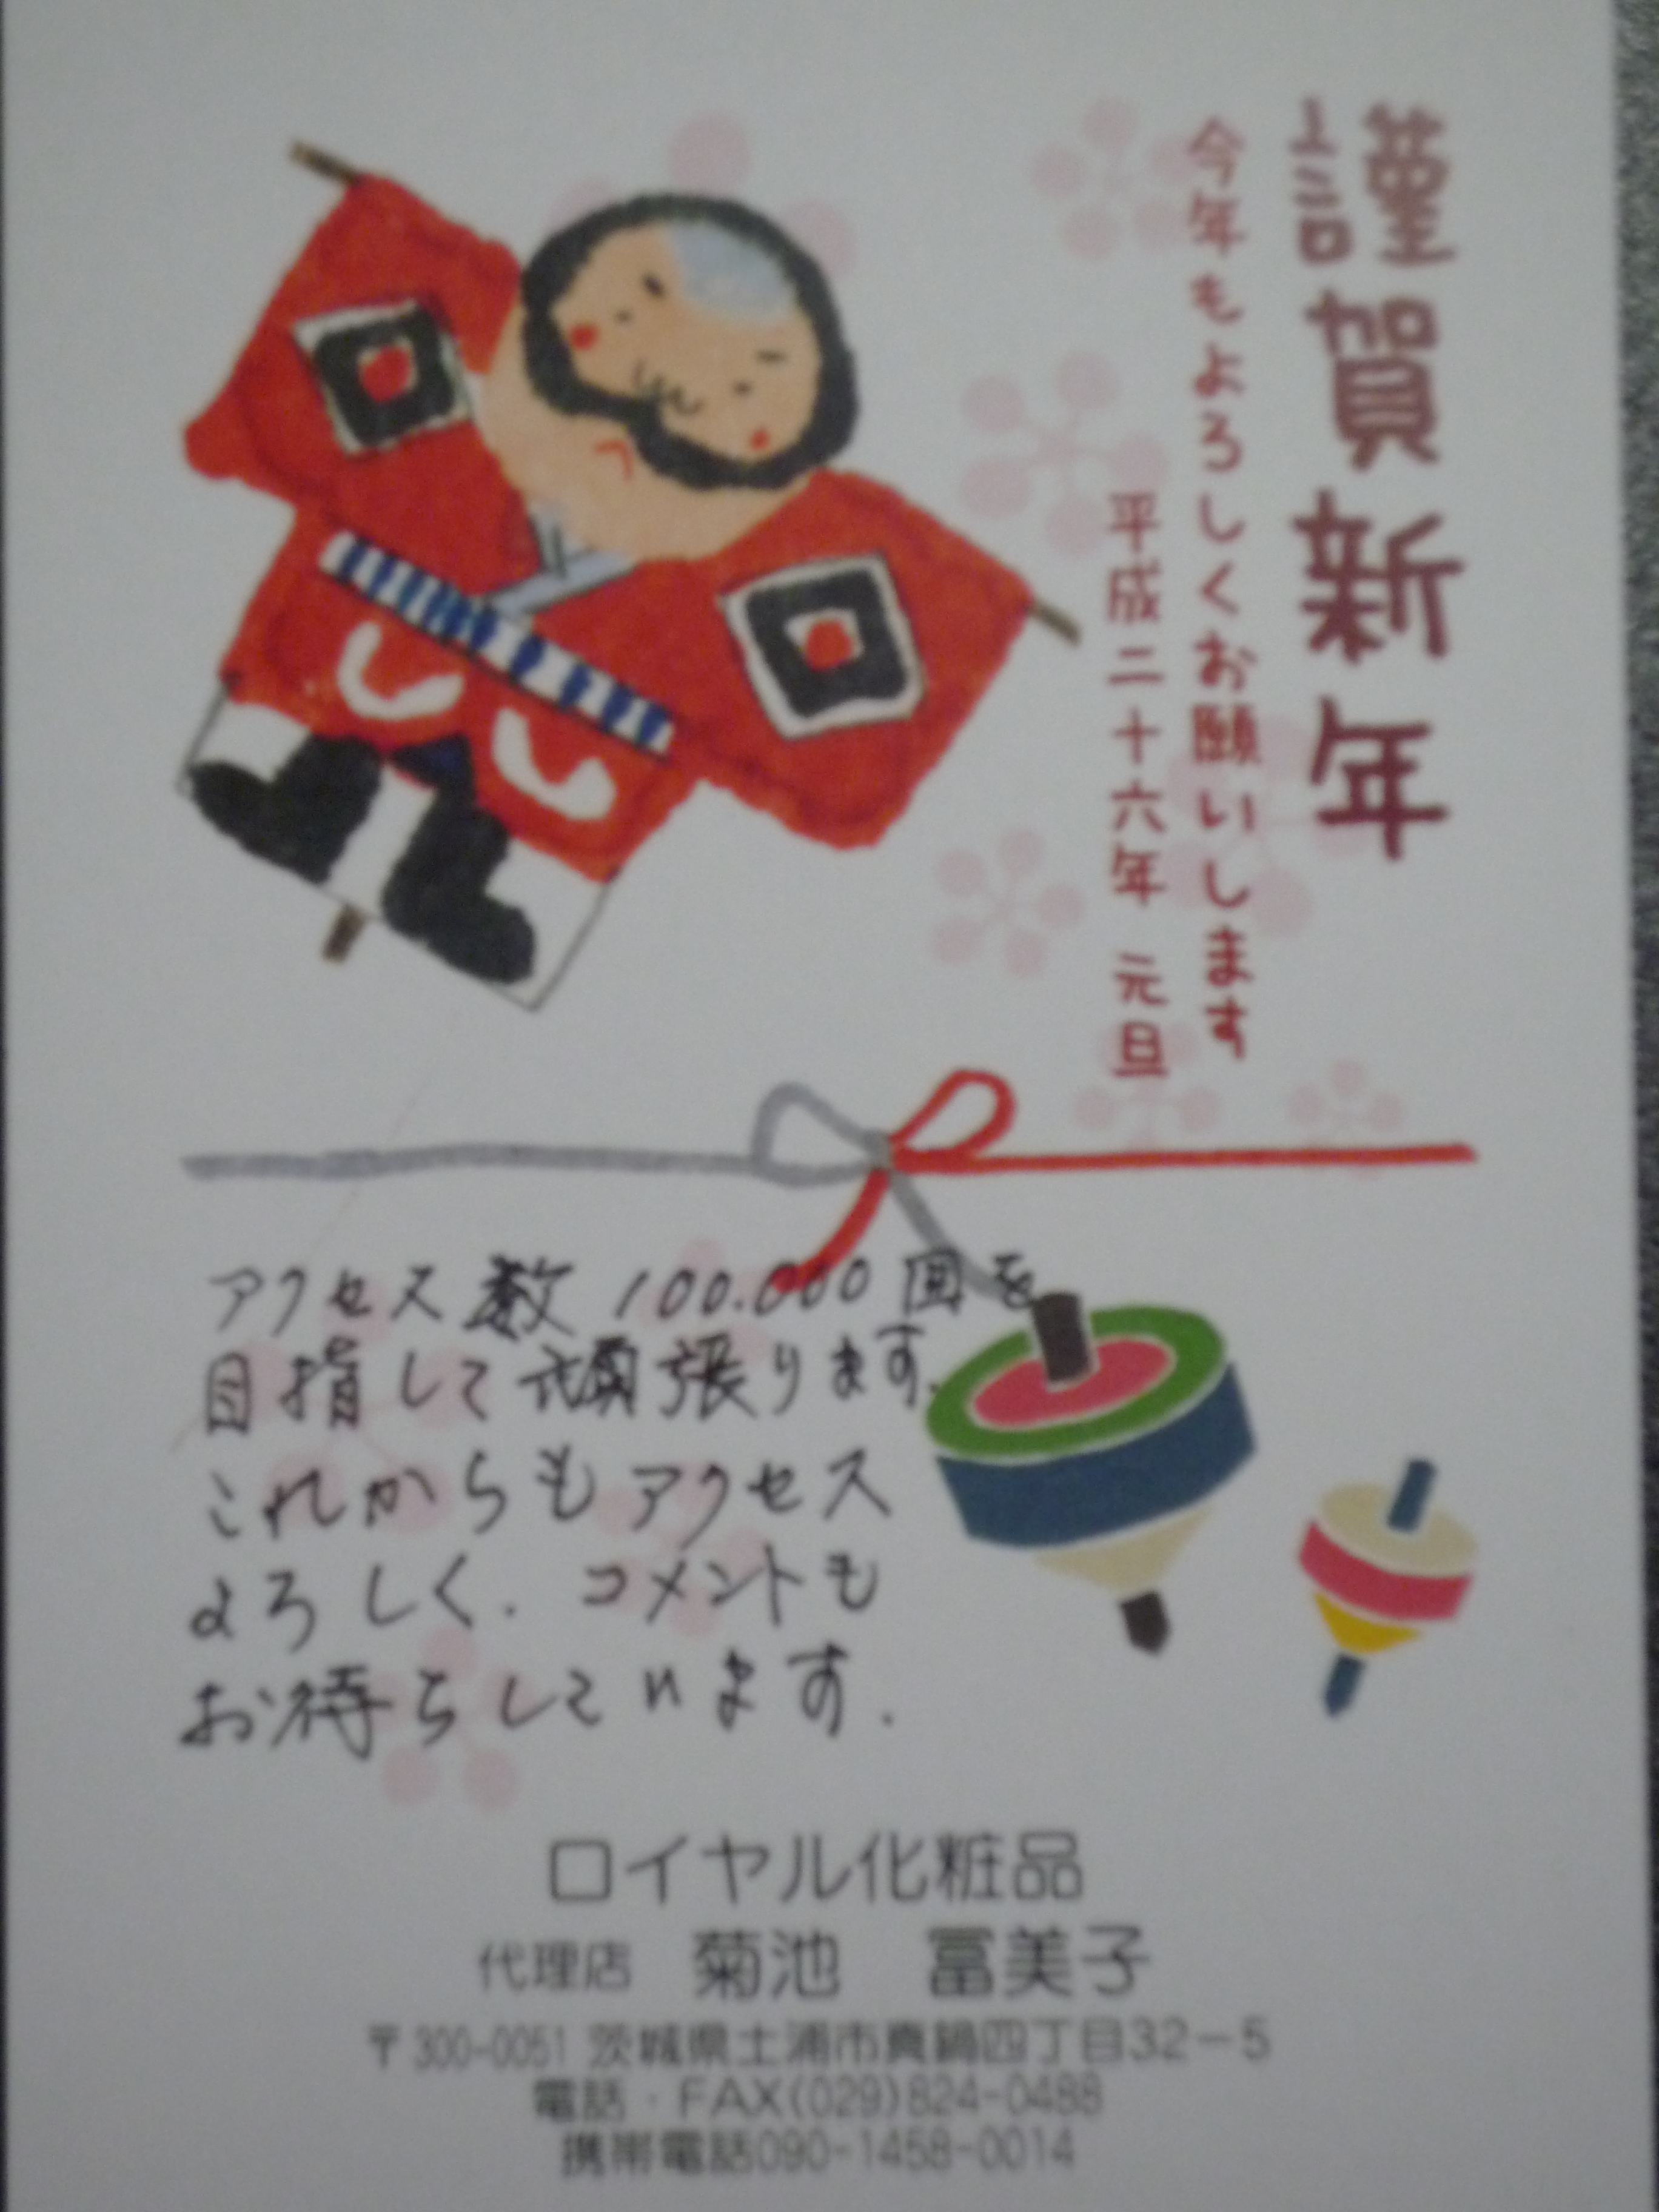 謹賀新年
今年もよろしくお願いします
平成二十六年 元旦
アクセス数 100.000 回を
目指して頑張ります.
これからもアクセス
よろしく. コメントも
お待ちしています.
ロイヤル化粧品
代理店 菊池 冨美子
〒300-0051 茨城県土浦市真鍋四丁目32-5
電話・FAX(029)824-0488
携帯電話090-1458-0014